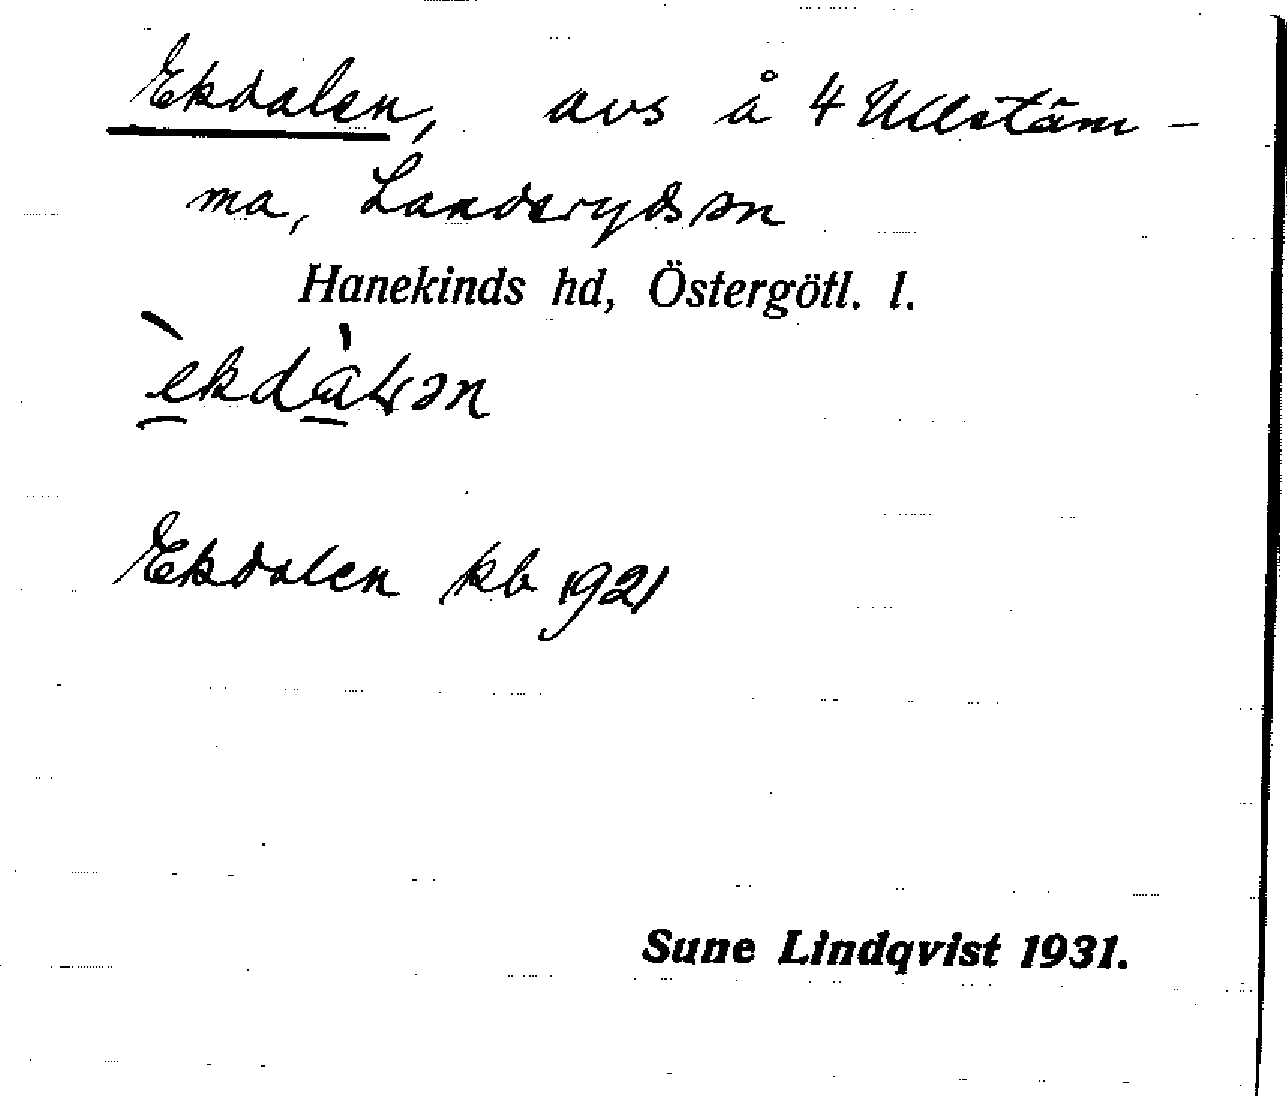 Ekdalen, avs å 4 Ullstäm-
ma, Landeryds sn
Hanekinds hd, Östergötl. l.
Ekdalen kb 1921
Sune Lindqvist 1931.